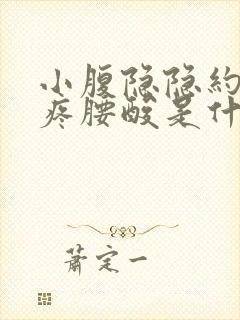 小腹隐隐約
疼腰酸是什
蕭定一